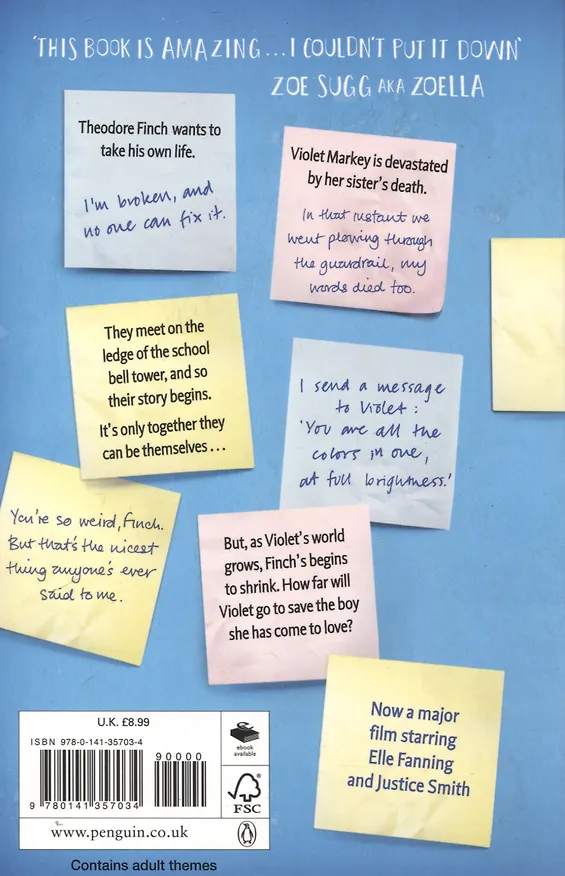 'THIS BOOK IS AMAZING...I COULDN'T PUT IT DOWN'
ZOE SUGG AKA ZOELLA
Theodore Finch wants to
take his own life.
I'm broken, and
no one can fix it.
Violet Markey is devastated
by her sister's death.
In that instant we
went plowing through
the guardrail, my
words died too.
They meet on the
ledge of the school
bell tower, and so
their story begins.
It's only together they
can be themselves...
I send a message
to Violet:
'You are all the
colors in one,
at full brightness.'
You're so weird, Finch.
But that's the nicest
thing anyone's ever
said to me.
But, as Violet's world
grows, Finch's begins
to shrink. How far will
Violet go to save the boy
she has come to love?
Now a major
film starring
Elle Fanning
and Justice Smith
U.K. £8.99
ISBN 978-0-141-35703-4
90000
9 780141 357034
ebook
available
FSC
www.penguin.co.uk
Contains adult themes